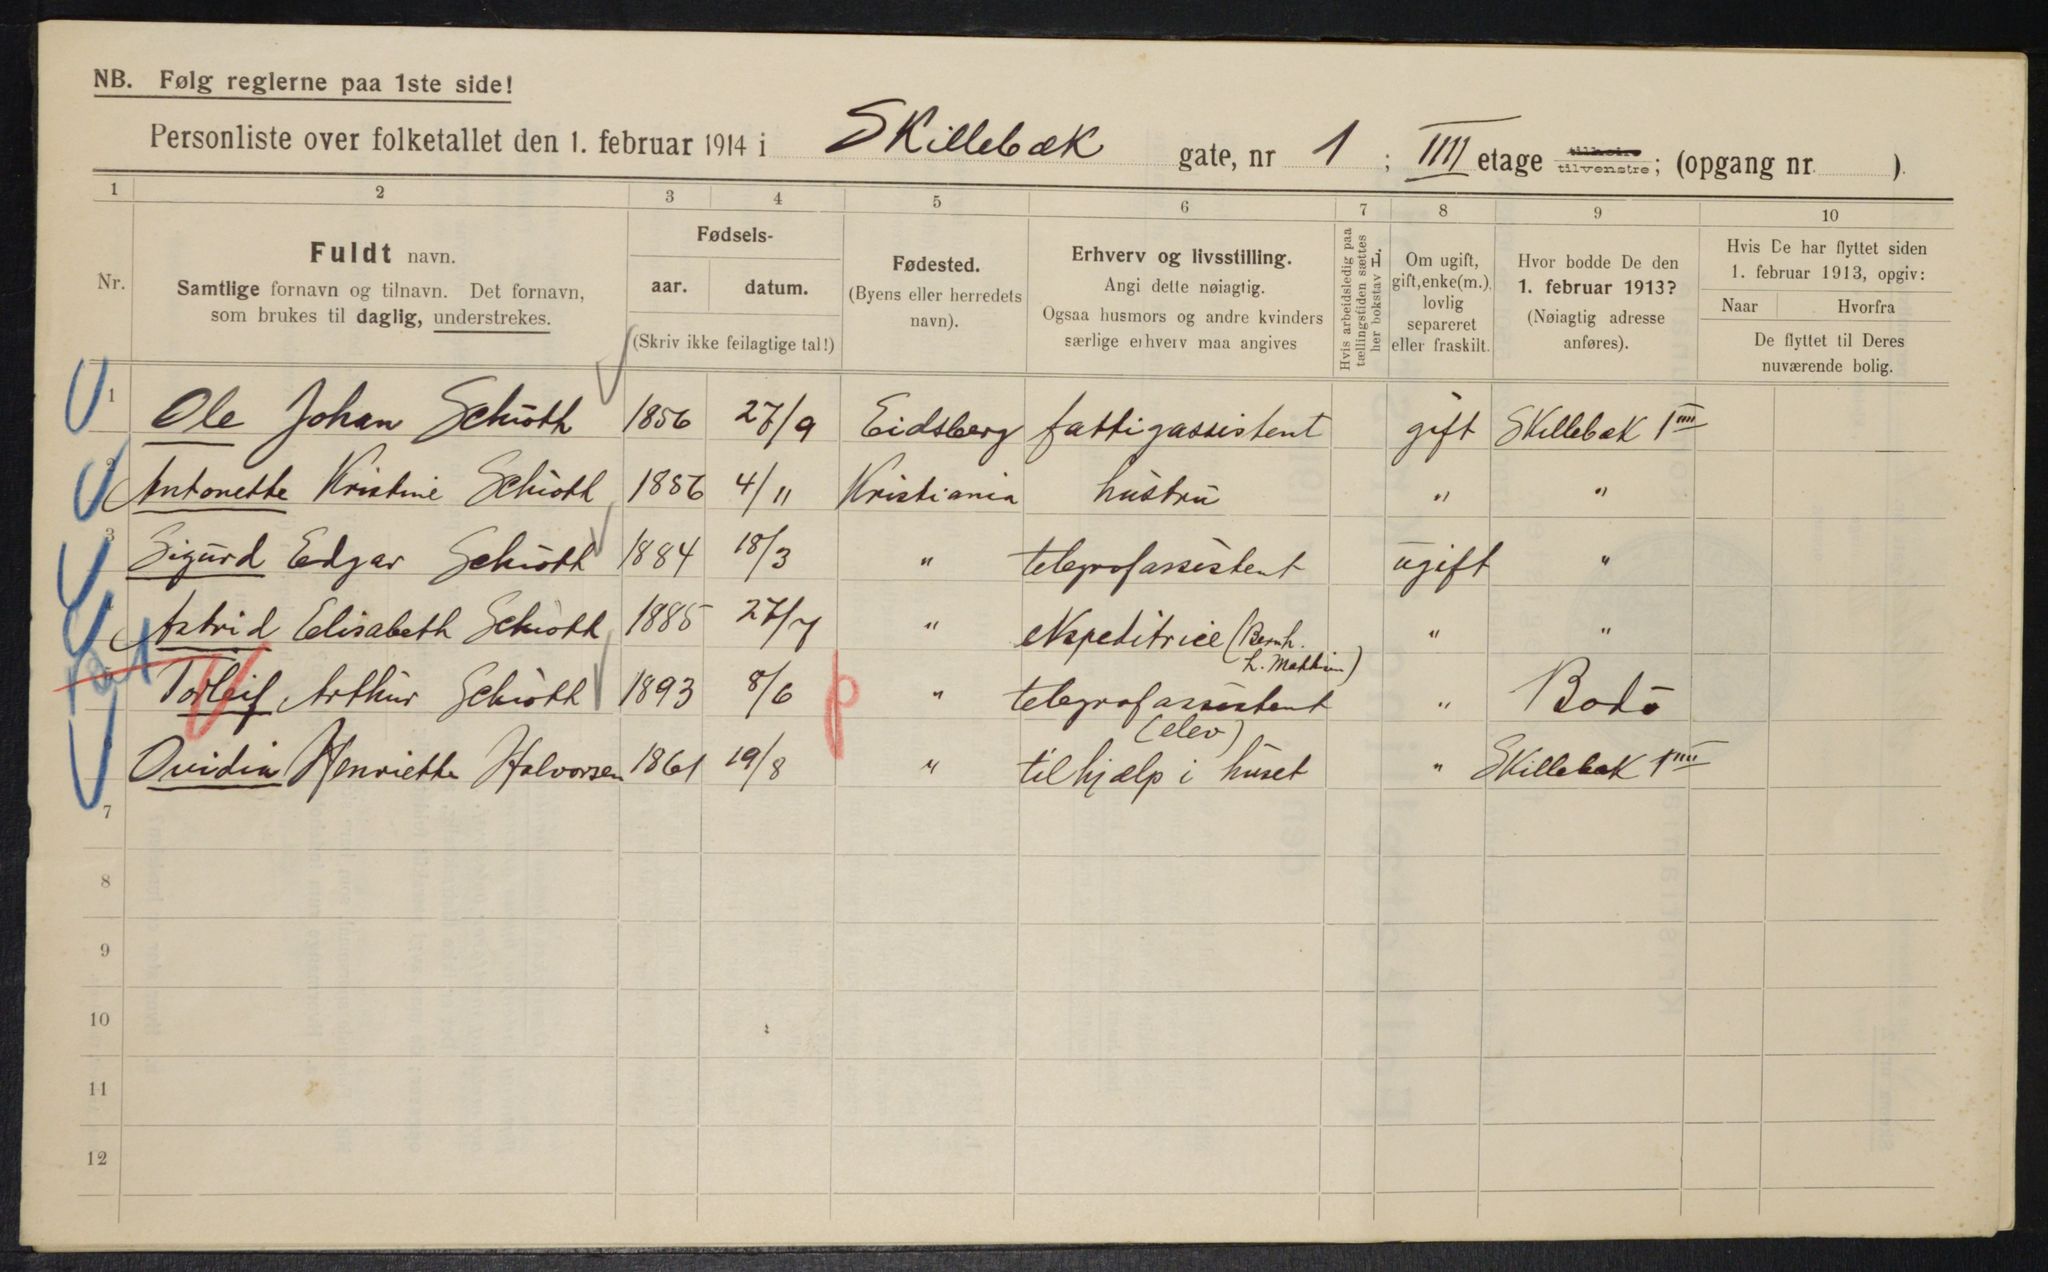 NB. Følg reglerne paa 1ste side!
Personliste over folketallet den 1. februar 1914 i Skillebæk gate, nr 1 ; IIII etage tilhøire tilvenstre; (opgang nr. ).
1 2 3 4 5 6 7 8 9 10
Nr.
Fuldt navn.
Samtlige fornavn og tilnavn. Det fornavn,
som brukes til daglig, understrekes.
Fødsels-
aar. datum.
(Skriv ikke feilagtige tal!)
Fødested.
(Byens eller herredets
navn).
Erhverv og livsstilling.
Angi dette nøiagtig.
Ogsaa husmors og andre kvinders
særlige erhverv maa angives
Hvis arbeidsledig paa
tællingstiden sættes
her bokstav L.
Om ugift,
gift, enke(m.),
lovlig
separeret
eller fraskilt.
Hvor bodde De den
1. februar 1913?
(Nøiagtig adresse
anføres).
Hvis De har flyttet siden
1. februar 1913, opgiv:
Naar Hvorfra
De flyttet til Deres
nuværende bolig.
1 Ole Johan Schiöth 1856 27/9 Eidsberg fattigassistent gift Skillebæk 1 IIII
2 Antonette Kristine Schiöth 1856 4/11 Kristiania hustru " "
3 Sigurd Edgar Schiöth 1884 18/3 " telegrafassistent ugift "
4 Astrid Elisabeth Schiöth 1885 27/7 " ekspeditrice (Bernh.
L. ) " "
5 Torleif Arthur Schiöth 1893 8/6 " telegrafassistent " Bodö
(elev)
6 Ovidia Henriette Halvorsen 1861 19/8 " til hjælp i huset " Skillebæk 1 IIII
7
8
9
10
11
12